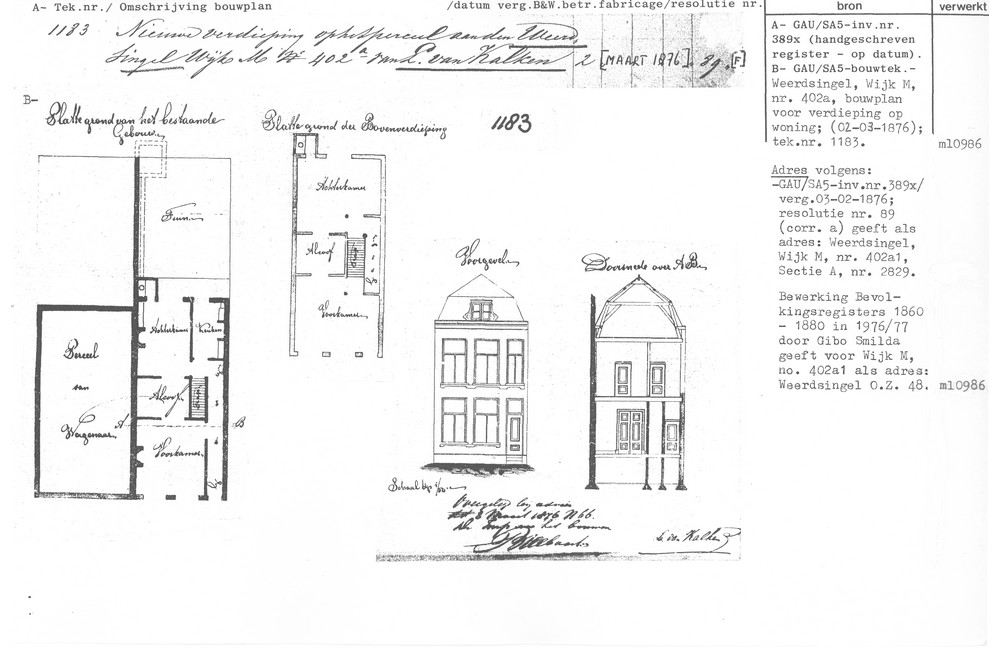 A- Tek.nr./ Omschrijving bouwplan
/datum verg.B&W.betr.fabricage/resolutie nr.
bron
verwerkt
1183 Nieuwe verdieping op het perceel aan den Weerd
Singel Wijk M No 402a van L. van Kalken 2 [MAART 1876]. 89. [F]
A- GAU/SA5-inv.nr.
389x (handgeschreven
register - op datum).
B- GAU/SA5-bouwtek.-
Weerdsingel, Wijk M,
nr. 402a, bouwplan
voor verdieping op
woning; (02-03-1876);
tek.nr. 1183.
ml0986
Adres volgens:
-GAU/SA5-inv.nr.389x/
verg.03-02-1876;
resolutie nr. 89
(corr. a) geeft als
adres: Weerdsingel,
Wijk M, nr. 402a1,
Sectie A, nr. 2829.
Bewerking Bevol-
kingsregisters 1860
- 1880 in 1976/77
door Gibo Smilda
geeft voor Wijk M,
no. 402a1 als adres:
Weerdsingel O.Z. 48.
ml0986
B-
Platte grond van het bestaande
Gebouw
Tuin
Achterkamer
Keuken
Alcoof
Voorkamer
Perceel
van
Wagenaar
A
B
Platte grond der Bovenverdieping
1183
Achterkamer
Alcoof
Voorkamer
Voorgevel
Doorsnede over A B
Schaal
Overgelegd bij advies
1876 N 66.
De Insp van het bouwen
L van Kalken